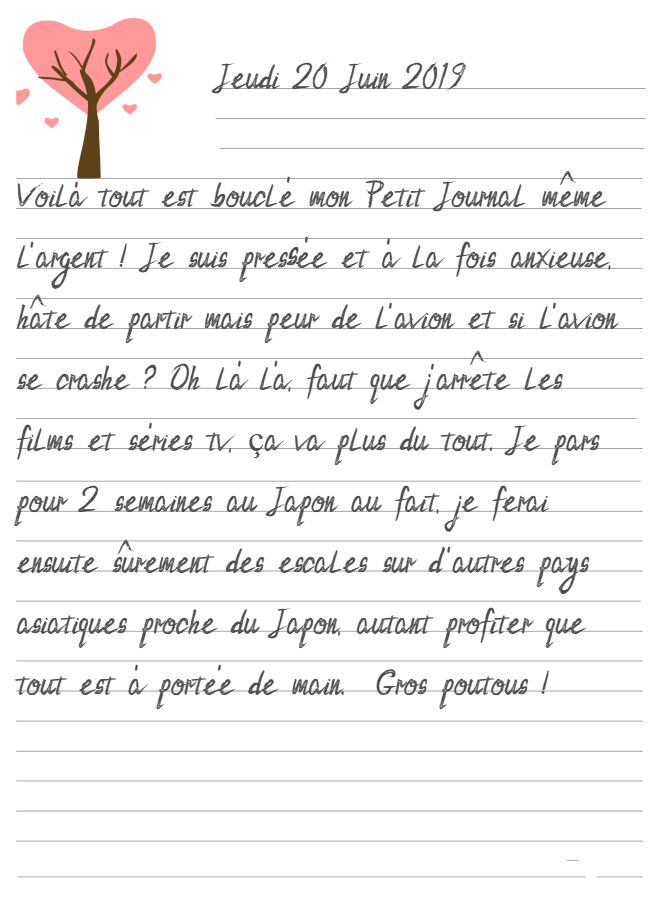 Jeudi 20 Juin 2019
Voilà tout est bouclé mon Petit Journal même
l'argent ! Je suis pressée et à la fois anxieuse,
hâte de partir mais peur de l'avion et si l'avion
se crashe ? Oh là là, faut que j'arrête les
films et séries tv, ça va plus du tout. Je pars
pour 2 semaines au Japon au fait, je ferai
ensuite sûrement des escales sur d'autres pays
asiatiques proche du Japon, autant profiter que
tout est à portée de main. Gros poutous !